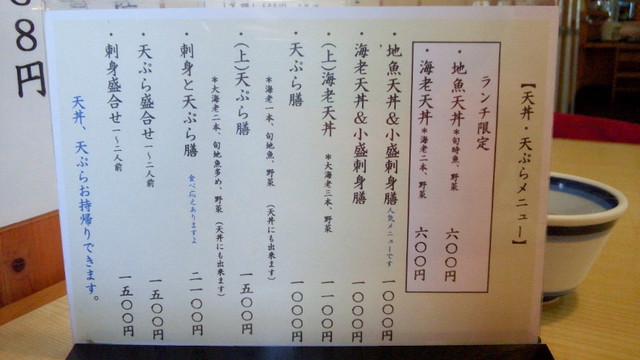 【天丼・天ぷらメニュー】
ランチ限定
・地魚天丼 *旬時魚、野菜 六〇〇円
・海老天丼 *海老二本、野菜 六〇〇円
・地魚天丼&小盛刺身膳 人気メニューです 一〇〇〇円
・海老天丼&小盛刺身膳 一〇〇〇円
・(上)海老天丼 *大海老三本、野菜 一一〇〇円
・天ぷら膳 一〇〇〇円
*海老一本、旬地魚、野菜 (天丼にも出来ます)
・(上)天ぷら膳 一五〇〇円
*大海老二本、旬地魚多め、野菜 (天丼にも出来ます)
・刺身と天ぷら膳 食べ応えありますよ 二一〇〇円
・天ぷら盛合せ 一〜二人前 一五〇〇円
・刺身盛合せ 一〜二人前 一五〇〇円
天丼、天ぷらお持帰りできます。
8円